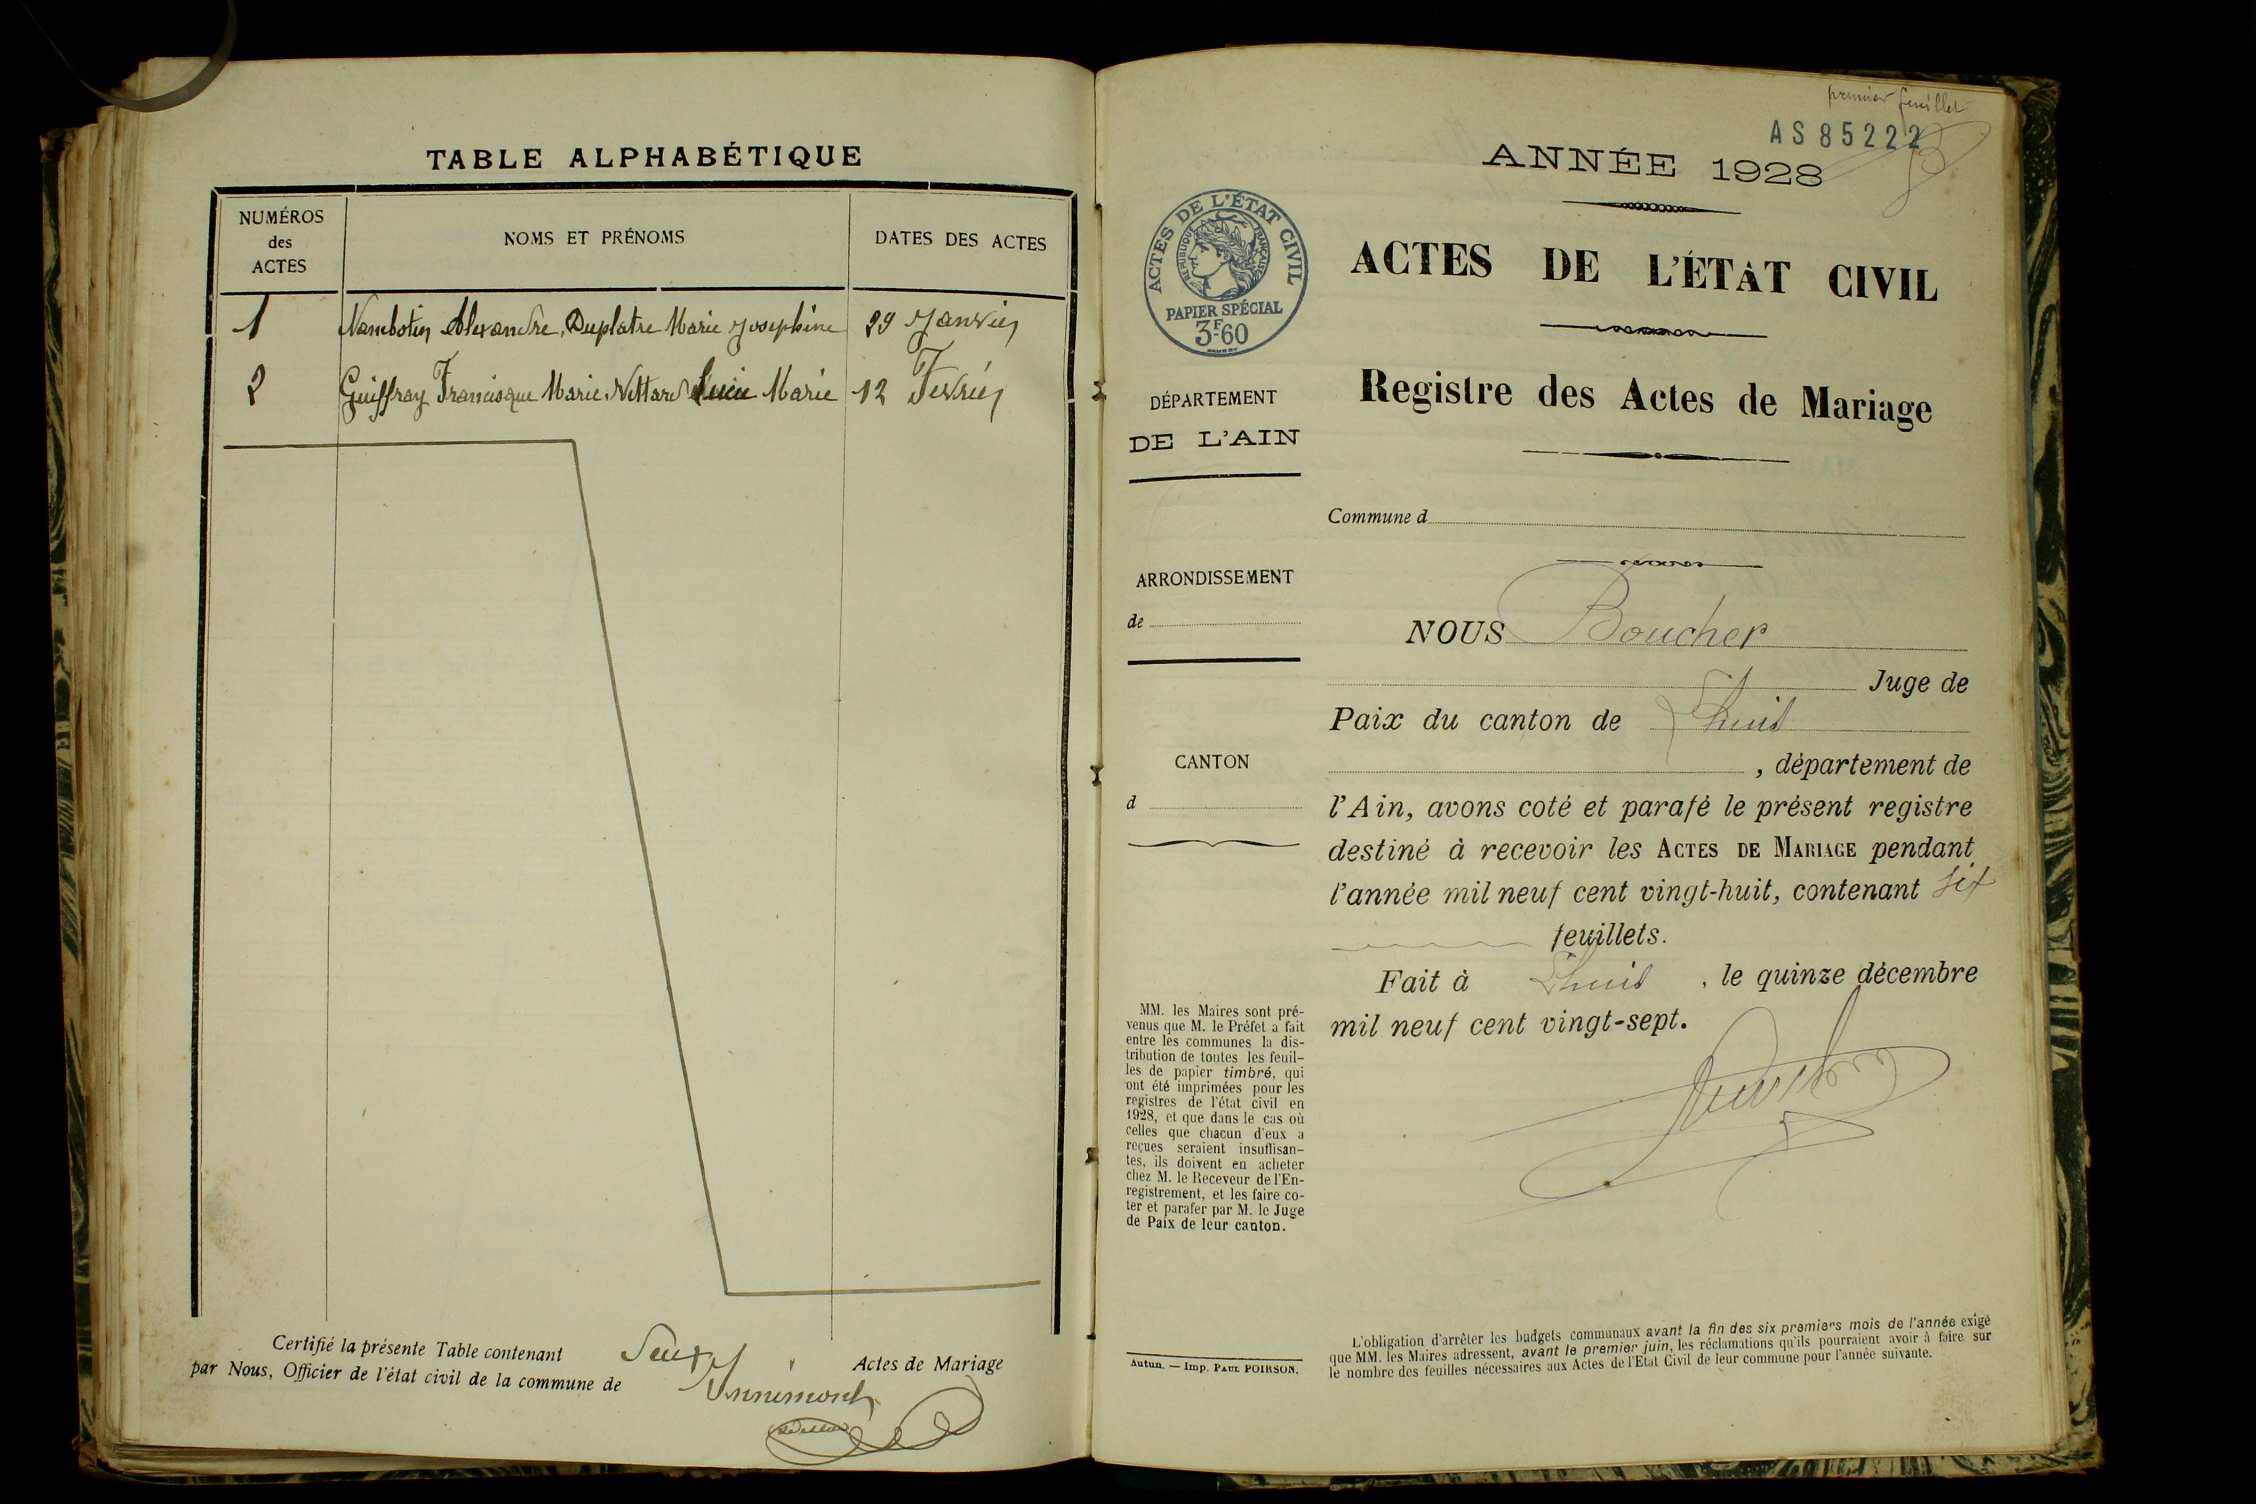 TABLE ALPHABÉTIQUE
NUMÉROS
des
ACTES
NOMS ET PRÉNOMS
DATES DES ACTES
1 Nambotin Alexandre, Duplatre Marie Josephine 29 Janvier
2 Guiffray Francisque Marie, Vettard Lucie Marie 12 Fevrier
Certifié la présente Table contenant Deux Actes de Mariage
par Nous, Officier de l'état civil de la commune de Innimont
premier feuillet
AS 85222
ANNÉE 1928
ACTES DE L'ÉTAT CIVIL
RÉPUBLIQUE FRANÇAISE
PAPIER SPÉCIAL
3F60
ACTES DE L'ÉTAT CIVIL
Registre des Actes de Mariage
DÉPARTEMENT
DE L'AIN
Commune d
ARRONDISSEMENT
de
CANTON
d
NOUS Boucher
Juge de
Paix du canton de Lhuis
, département de
l'Ain, avons coté et parafé le présent registre
destiné à recevoir les ACTES DE MARIAGE pendant
l'année mil neuf cent vingt-huit, contenant six
feuillets.
Fait à Lhuis, le quinze décembre
mil neuf cent vingt-sept.
MM. les Maires sont pré-
venus que M. le Préfet a fait
entre les communes la dis-
tribution de toutes les feuil-
les de papier timbré, qui
ont été imprimées pour les
registres de l'état civil en
1928, et que dans le cas où
celles que chacun d'eux a
reçues seraient insuffisan-
tes, ils doivent en acheter
chez M. le Receveur de l'En-
registrement, et les faire co-
ter et parafer par M. le Juge
de Paix de leur canton.
Autun. — Imp. PAUL POIRSON.
L'obligation d'arrêter les budgets communaux avant la fin des six premiers mois de l'année exige
que MM. les Maires adressent, avant le premier juin, les réclamations qu'ils pourraient avoir à faire sur
le nombre des feuilles nécessaires aux Actes de l'Etat Civil de leur commune pour l'année suivante.